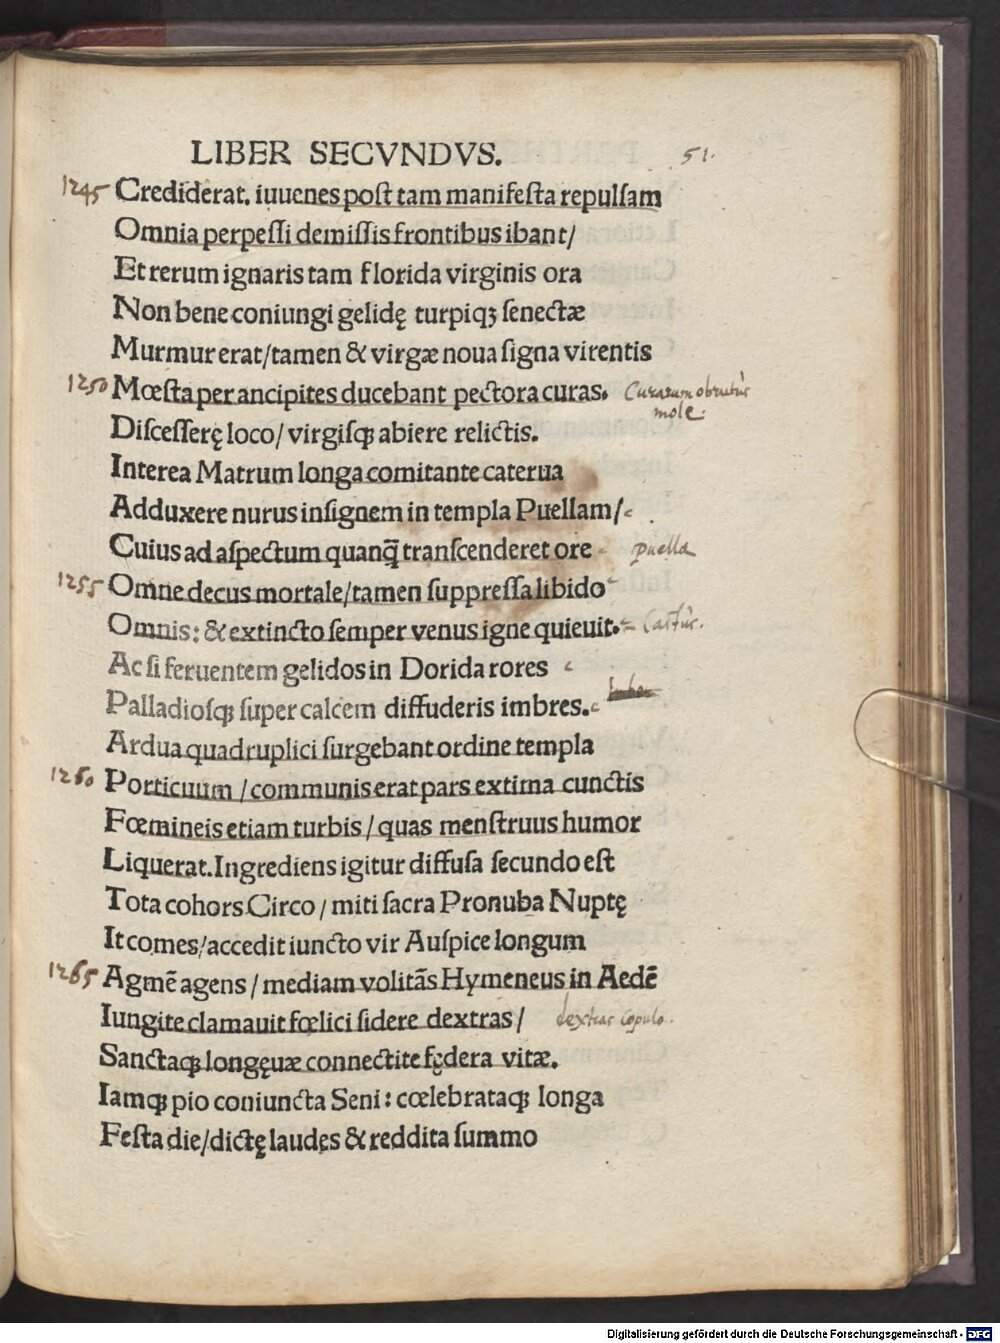 LIBER SECVNDVS. 51.
1245 Crediderat. iuuenes post tam manifesta repulsam
Omnia perpessi demissis frontibus ibant/
Et rerum ignaris tam florida virginis ora
Non bene coniungi gelidę turpiqꝫ senectæ
Murmur erat/tamen & virgæ noua signa virentis
1250 Mœsta per ancipites ducebant pectora curas. Curarum obruitur
mole.
Discesserę loco/ virgisqꝫ abiere relictis.
Interea Matrum longa comitante caterua
Adduxere nurus insignem in templa Puellam/
Cuius ad aspectum quanq̃ transcenderet ore puella
1255 Omne decus mortale/tamen suppressa libido
Omnis: & extincto semper venus igne quieuit.
Ac si feruentem gelidos in Dorida rores
Palladiosqꝫ super calcem diffuderis imbres.
Ardua quadruplici surgebant ordine templa
1260 Porticuum /communis erat pars extima cunctis
Fœmineis etiam turbis / quas menstruus humor
Liquerat. Ingrediens igitur diffusa secundo est
Tota cohors Circo / miti sacra Pronuba Nuptę
It comes/accedit iuncto vir Auspice longum
1265 Agmē agens / mediam volitās Hymeneus in Aedē
Iungite clamauit fœlici sidere dextras/ dextras copulo.
Sanctaqꝫ longęuæ connectite fędera vitæ.
Iamqꝫ pio coniuncta Seni: cœlebrataqꝫ longa
Festa die/dictę laudes & reddita summo
Digitalisierung gefördert durch die Deutsche Forschungsgemeinschaft - DFG